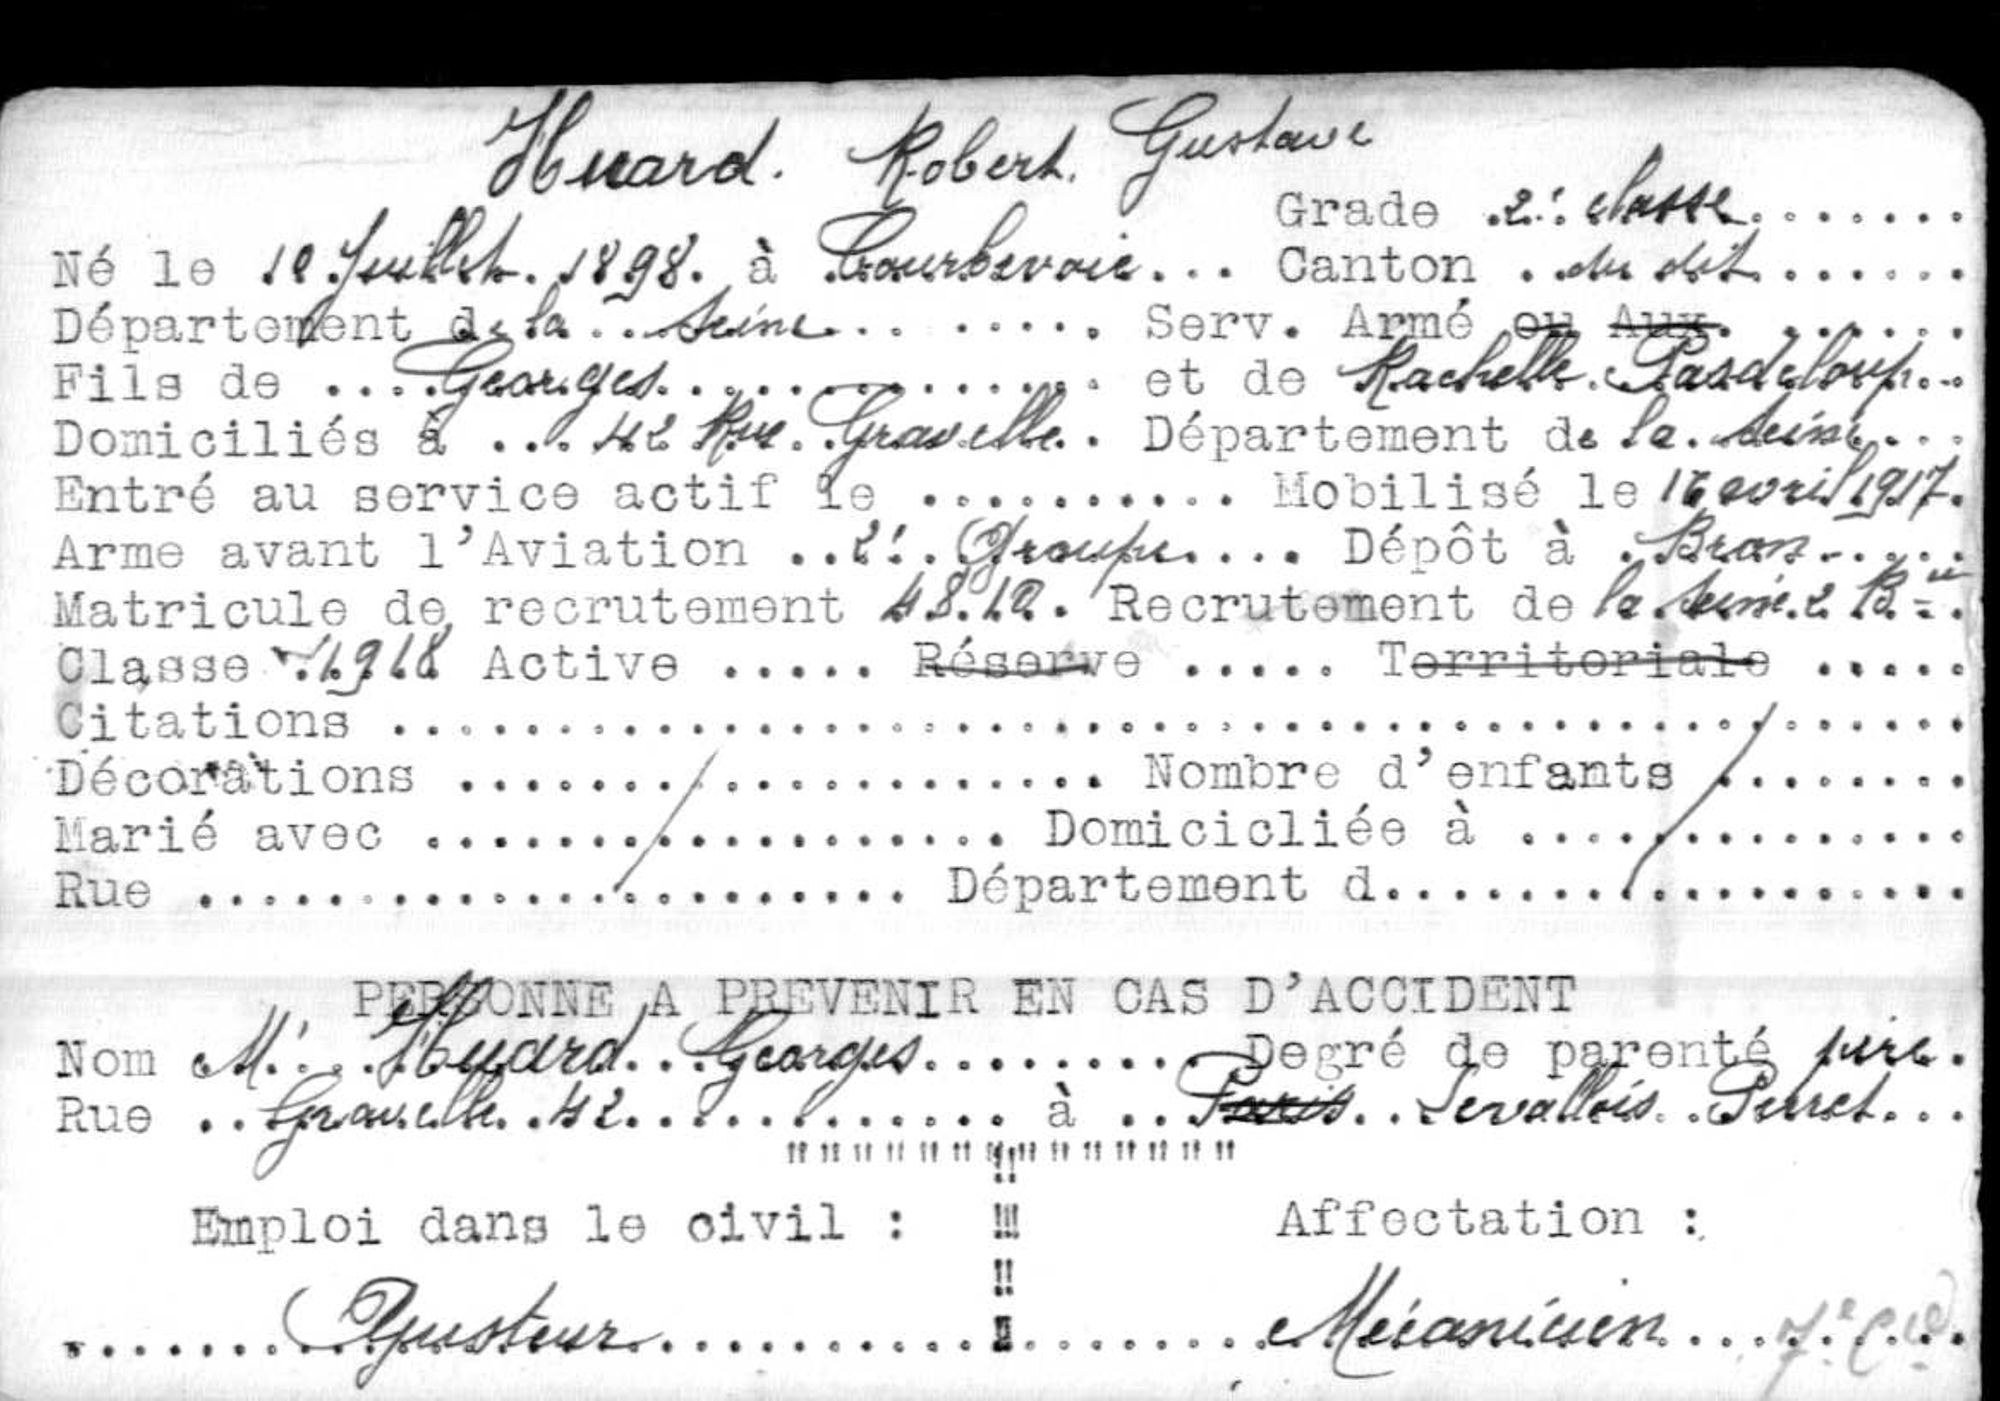 Huard. Robert. Gustave
Grade 2e classe
Né le 10 Juillet 1898. à Courbevoie... Canton du dit
Département de la Seine Serv. Armé ou Aux.
Fils de Georges et de Rachelle Pasdeloup
Domiciliés à 42 Rue Gravelle Département de la Seine
Entré au service actif le .......... Mobilisé le 16 avril 1917.
Arme avant l'Aviation 2e Groupe Dépôt à Bron
Matricule de recrutement 4810. Recrutement de la Seine 2 Bau
Classe 1918 Active ..... Réserve ..... Territoriale .....
Citations
Décorations .................... Nombre d'enfants ........
Marié avec .................. Domicicliée à ..............
Rue ...................... Département d..................
PERSONNE A PREVENIR EN CAS D'ACCIDENT
Nom Mr Huard Georges Degré de parenté père.
Rue Gravelle 42 à Paris Levallois Perret
Emploi dans le civil : Affectation :
Ajusteur Mécanicien 7e Cie